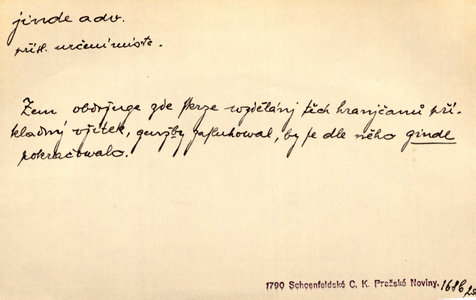 jinde adv.
přísl. určení místa.
Zem obdrјuge gde skrze vzdělánj těch hranjčanů pří-
kladný vžitek, genžby zasluhowal, by se dle něho ginde
pokračowalo.
1790 Schoenfeldské C. K. Pražské Noviny. 1686,